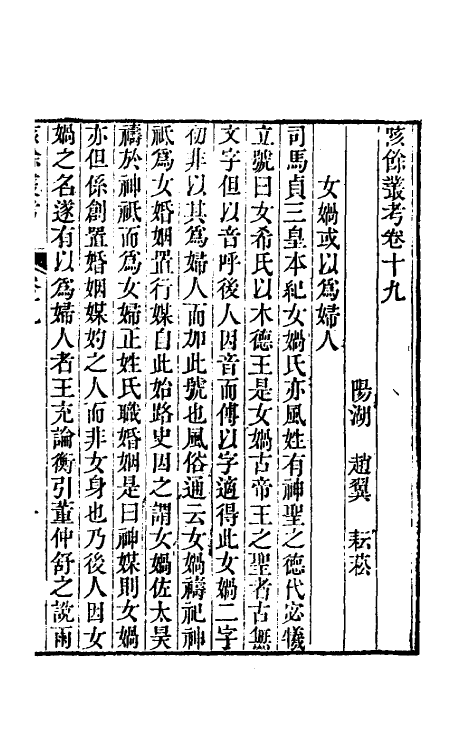 陔餘叢考卷十九
陽湖 趙翼 耘菘
女媧或以為婦人
司馬貞三皇本紀女媧氏亦風姓有神聖之德代宓犧
立號曰女希氏以木德王是女媧古帝王之聖者古無
文字但以音呼後人因音而傳以字適得此女媧二字
初非以其為婦人而加此號也風俗通云女媧禱祀神
祇為女婚姻置行媒自此始路史因之謂女媧佐太昊
禱於神祇而為女婦正姓氏職婚姻是曰神媒則女媧
亦但係創置婚姻媒妁之人而非女身也乃後人因女
媧之名遂有以為婦人者王充論衡引董仲舒之說雨